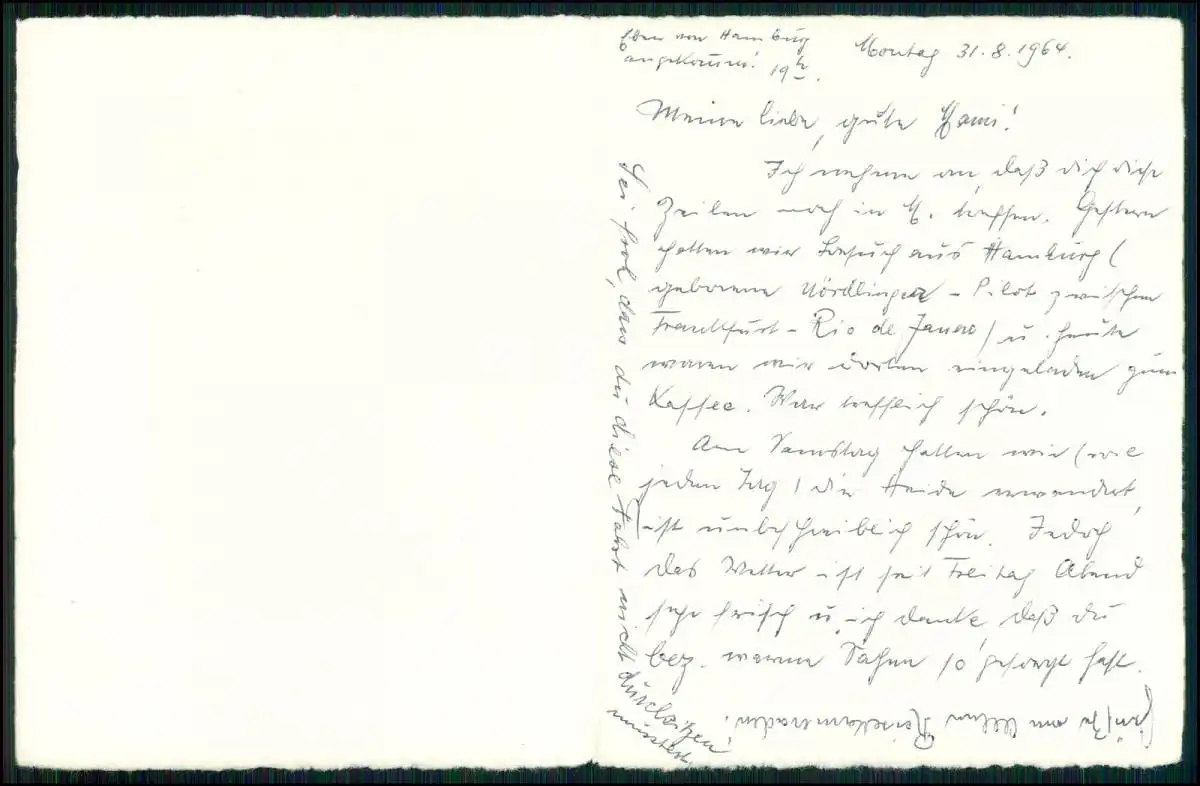 Eben von Hamburg
angekommen! 19 h.
Montag 31.8.1964.
Meine liebe, gute Mami!
Ich nehme an, daß dich diese
Zeilen noch in M. treffen. Gestern
hatten wir Besuch aus Hamburg (
geborene Nördlinger - Pilot zwischen
Frankfurt - Rio de Janero) u. heute
waren wir dorten eingeladen zum
Kaffee. War trefflich schön.
Am Samstag hatten wir (wie
jeden Tag) die Heide erwandert,
ist unbeschreiblich schön. Jedoch
das Wetter ist seit Freitag Abend
sehr frisch u. ich danke, daß du
bez. warme Sachen so gesorgt hast.
Sei froh, dass du diese Fahrt nicht durchsitzen
musstest.
von Reisekameraden!